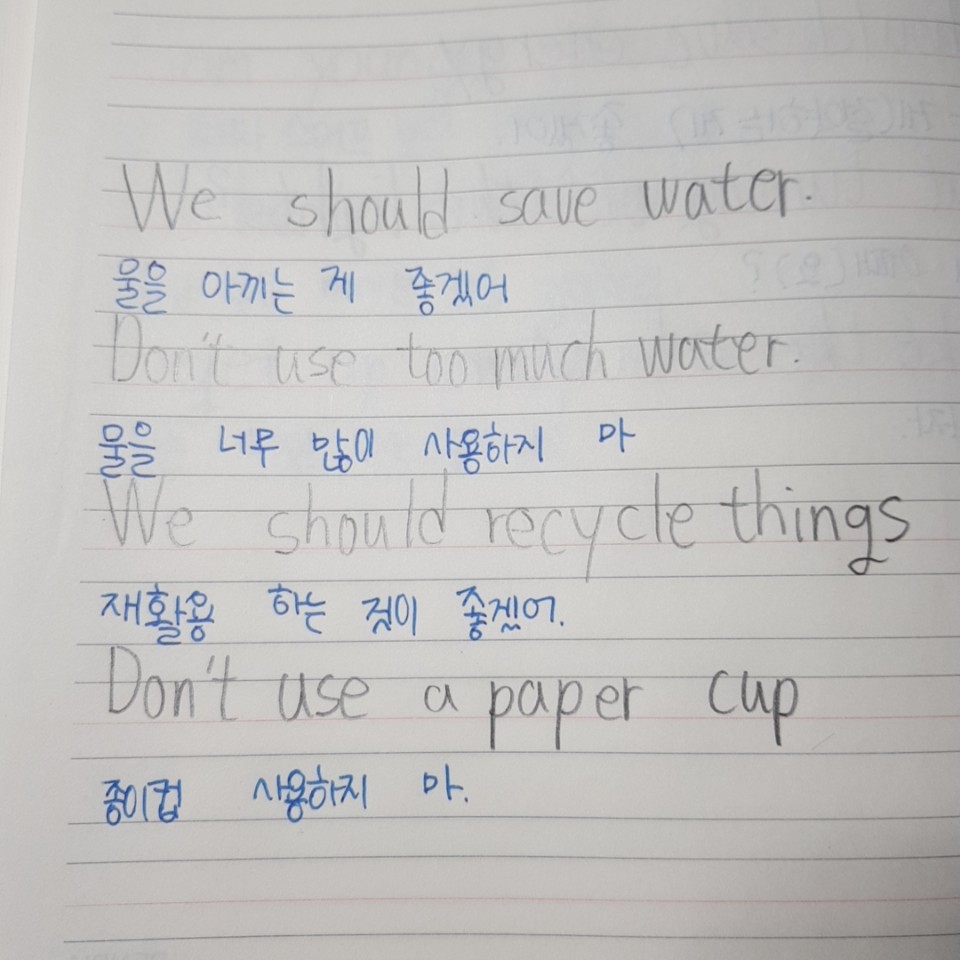 We should save water.
물을 아끼는 게 좋겠어
Don't use too much water.
물을 너무 많이 사용하지 마
We should recycle things
재활용 하는 것이 좋겠어.
Don't use a paper cup
종이컵 사용하지 마.